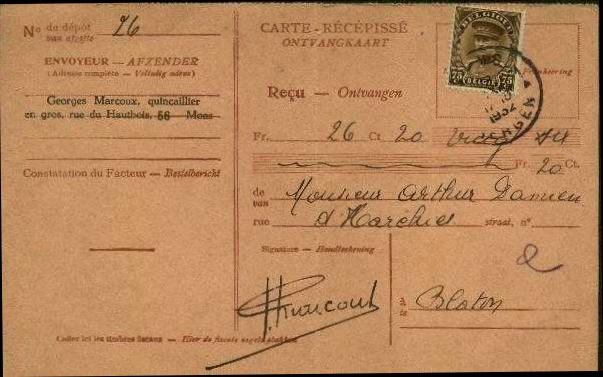 No du dépôt van afgifte 26
ENVOYEUR — AFZENDER
(Adresse complète — Volledig adres)
Georges Marcoux, quincaillier
en gros, rue du Hautbois, 56 Mons
Constatation du Facteur — Bestelbericht
CARTE-RÉCÉPISSÉ
ONTVANGKAART
BELGIQUE
75 BELGIË 75
Reçu — Ontvangen
Fr. 26 Ct 20
Fr. 20 Ct.
de van Monsieur Arthur Damien
rue d'Harchies straat, no
Signature — Handteekening
à te Blaton
Coller ici les timbres fiscaux — Hier de fiscale zegels plakken